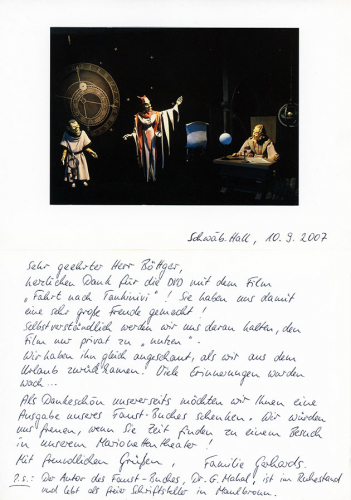 Schwäb. Hall, 10.9.2007
Sehr geehrter Herr Böttger,
herzlichen Dank für die DVD mit dem Film
„Fahrt nach Tankinivi"! Sie haben uns damit
eine sehr große Freude gemacht!
Selbstverständlich werden wir uns daran halten, den
Film nur privat zu „nutzen".
Wir haben ihn gleich angeschaut, als wir aus dem
Urlaub zurück kamen! Viele Erinnerungen wurden
wach...
Als Dankeschön unsererseits möchten wir Ihnen eine
Ausgabe unseres Faust-Buches schenken. Wir würden
uns freuen, wenn Sie Zeit finden zu einem Besuch
in unserem Marionettentheater!
Mit freundlichen Grüßen, Familie Gerhards.
P.s.: Der Autor des Faust-Buches, Dr. G. Mahal, ist im Ruhestand
und lebt als freier Schriftsteller in Maulbronn.